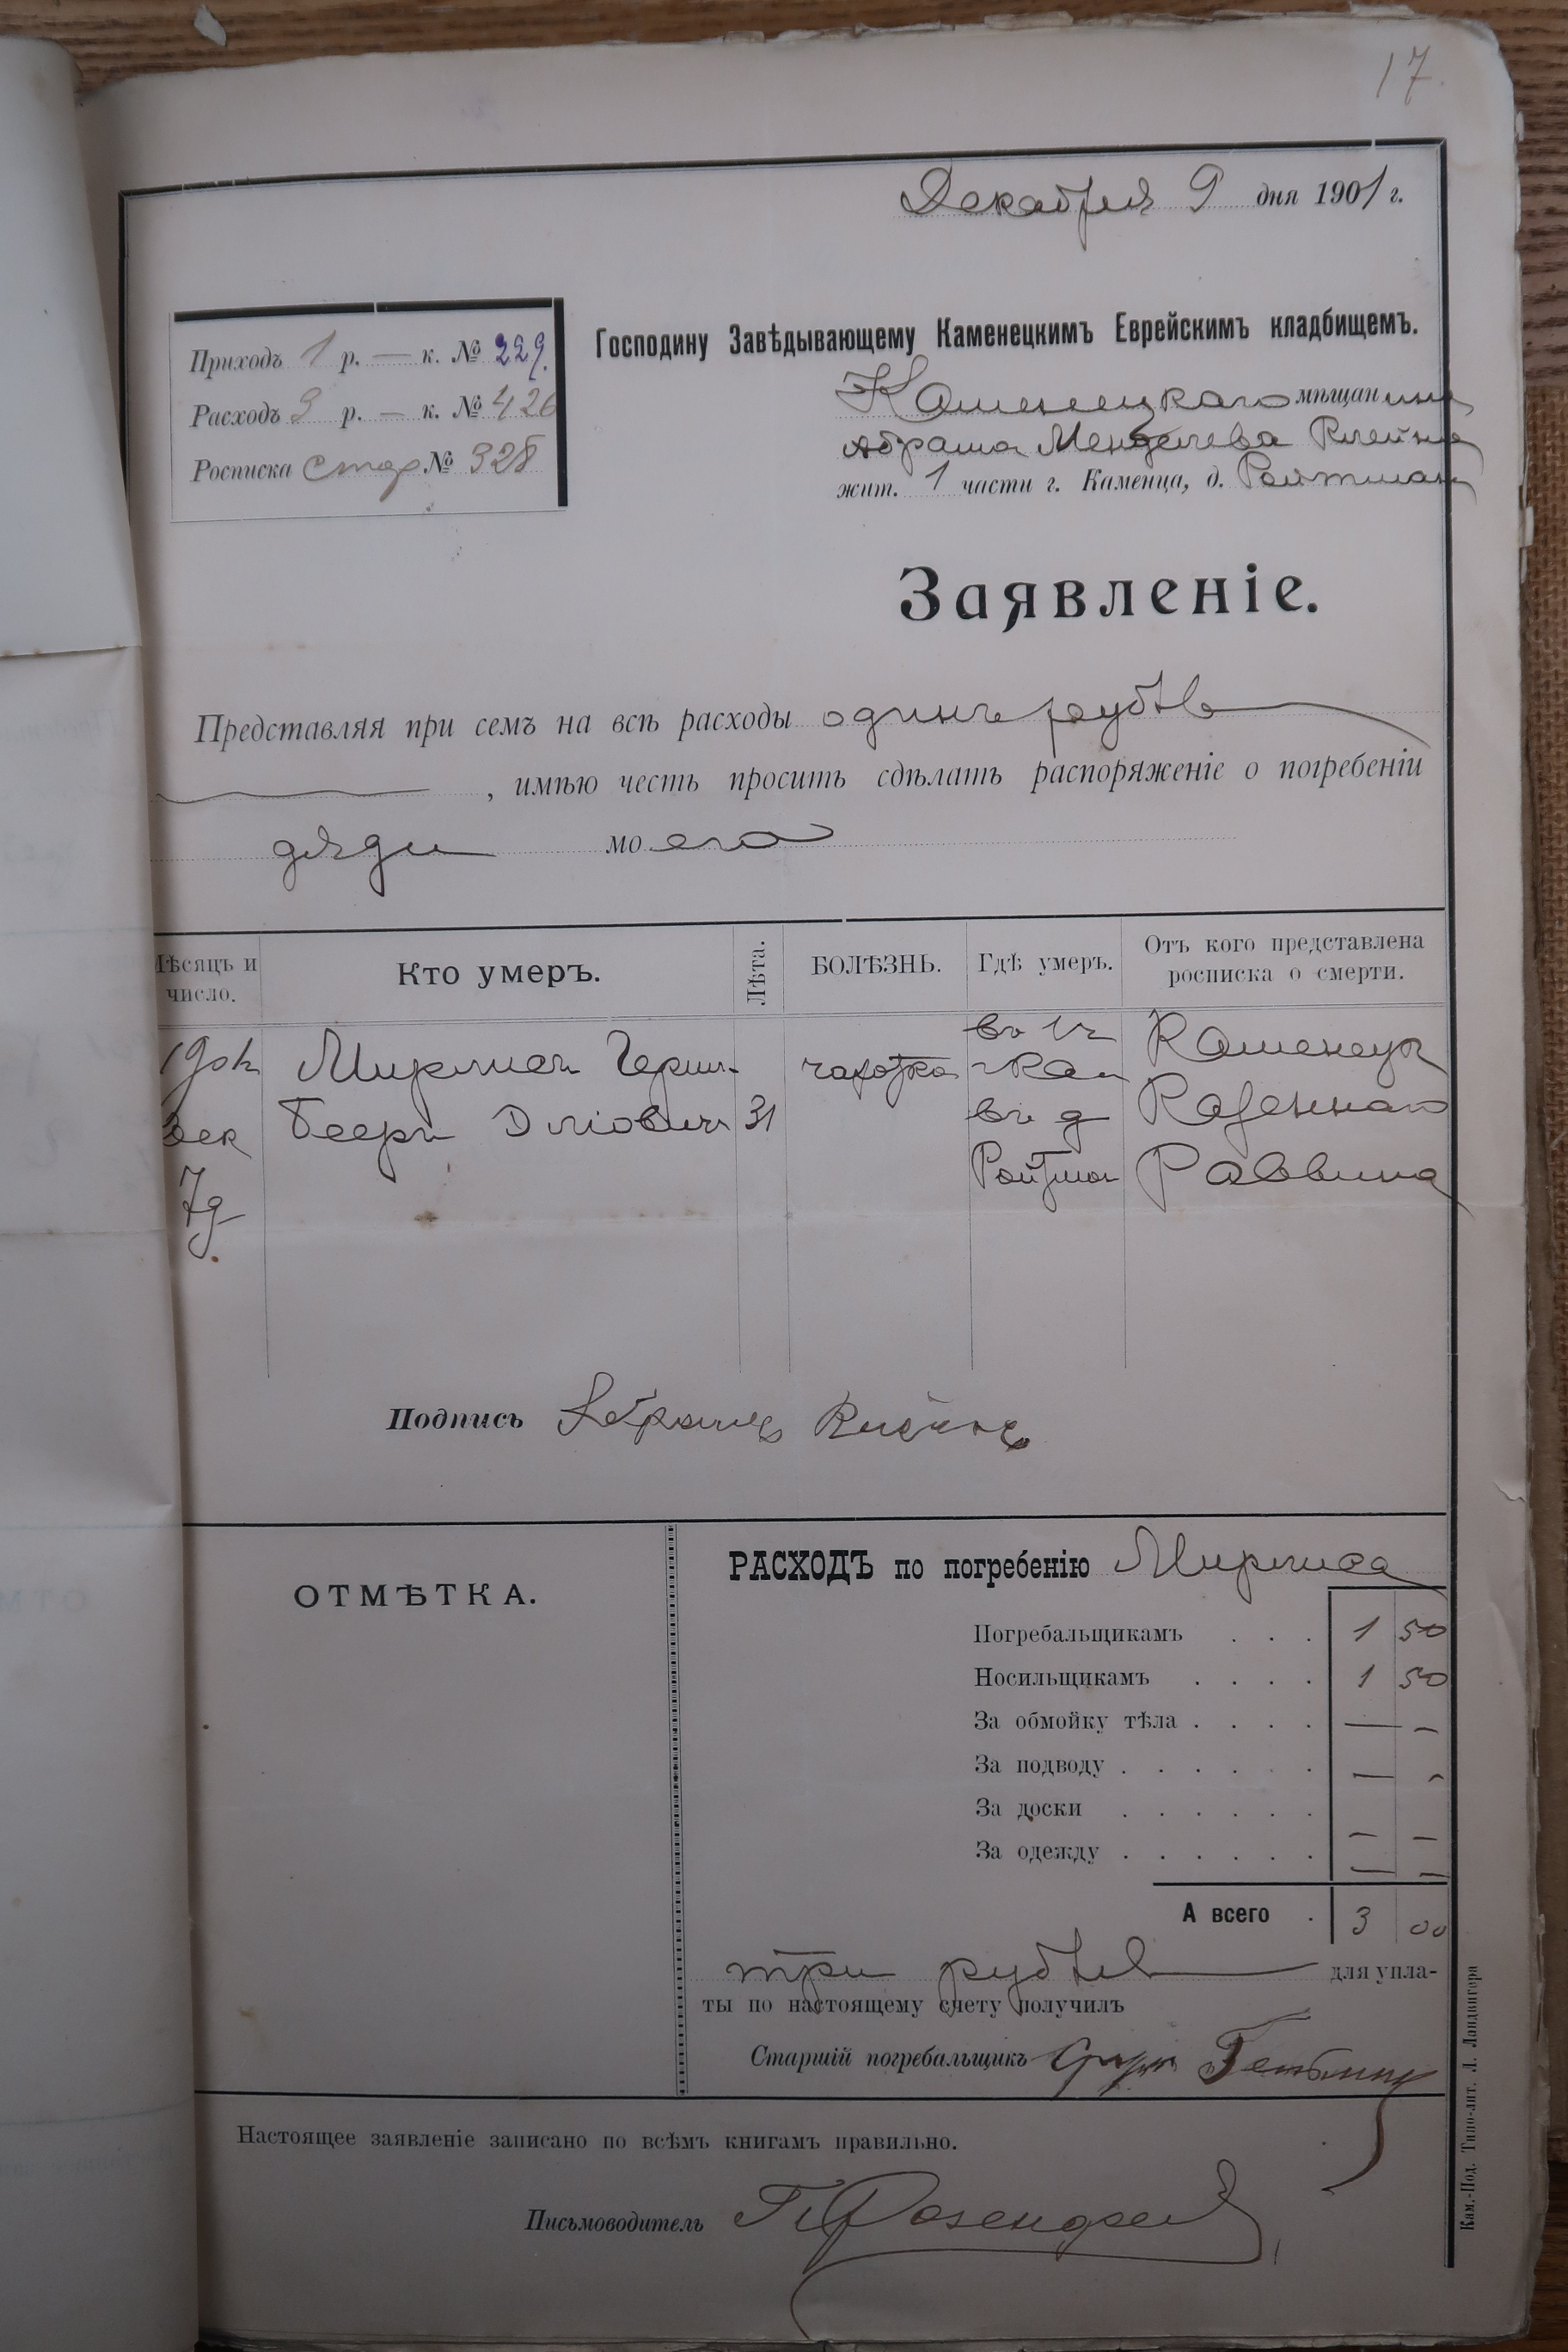 17.
Декабря 9 дня 1901 г.
Приходъ 1 р. — к. № 229.
Расходъ 3 р. — к. № 426
Росписка № 328
Господину Завѣдывающему Каменецкимъ Еврейскимъ кладбищемъ.
Каменецкаго мѣщанина
Абрама Менделева Клейна
жит. 1 части г. Каменца, д. Ройтман
Заявленіе.
Представляя при семъ на всѣ расходы одинъ рубль
, имѣю честь просить сдѣлать распоряженіе о погребеніи
дяди моего
Мѣсяцъ и число.
Кто умеръ.
Лѣта.
БОЛѢЗНЬ.
Гдѣ умеръ.
Отъ кого представлена росписка о смерти.
дек
7д.
Мирмиса Герш-
Бееръ Эліовичъ
31
чахотка
въ 1 ч
г Кам
въ д
Ройтман
Каменецк
Казеннаго
Раввина
Подпись Абрамъ Клейнъ
ОТМѢТКА.
РАСХОДЪ по погребенію Мирмиса
Погребальщикамъ . . . 1 50
Носильщикамъ . . . . 1 50
За обмойку тѣла . . . . — —
За подводу . . . . . — —
За доски . . . . . — —
За одежду . . . . . — —
А всего . 3 00
три рубля для упла-
ты по настоящему счету получилъ
Старшій погребальщикъ
Настоящее заявленіе записано по всѣмъ книгамъ правильно.
Письмоводитель
Кам.-Под. Типо-лит. Л. Ландвигера